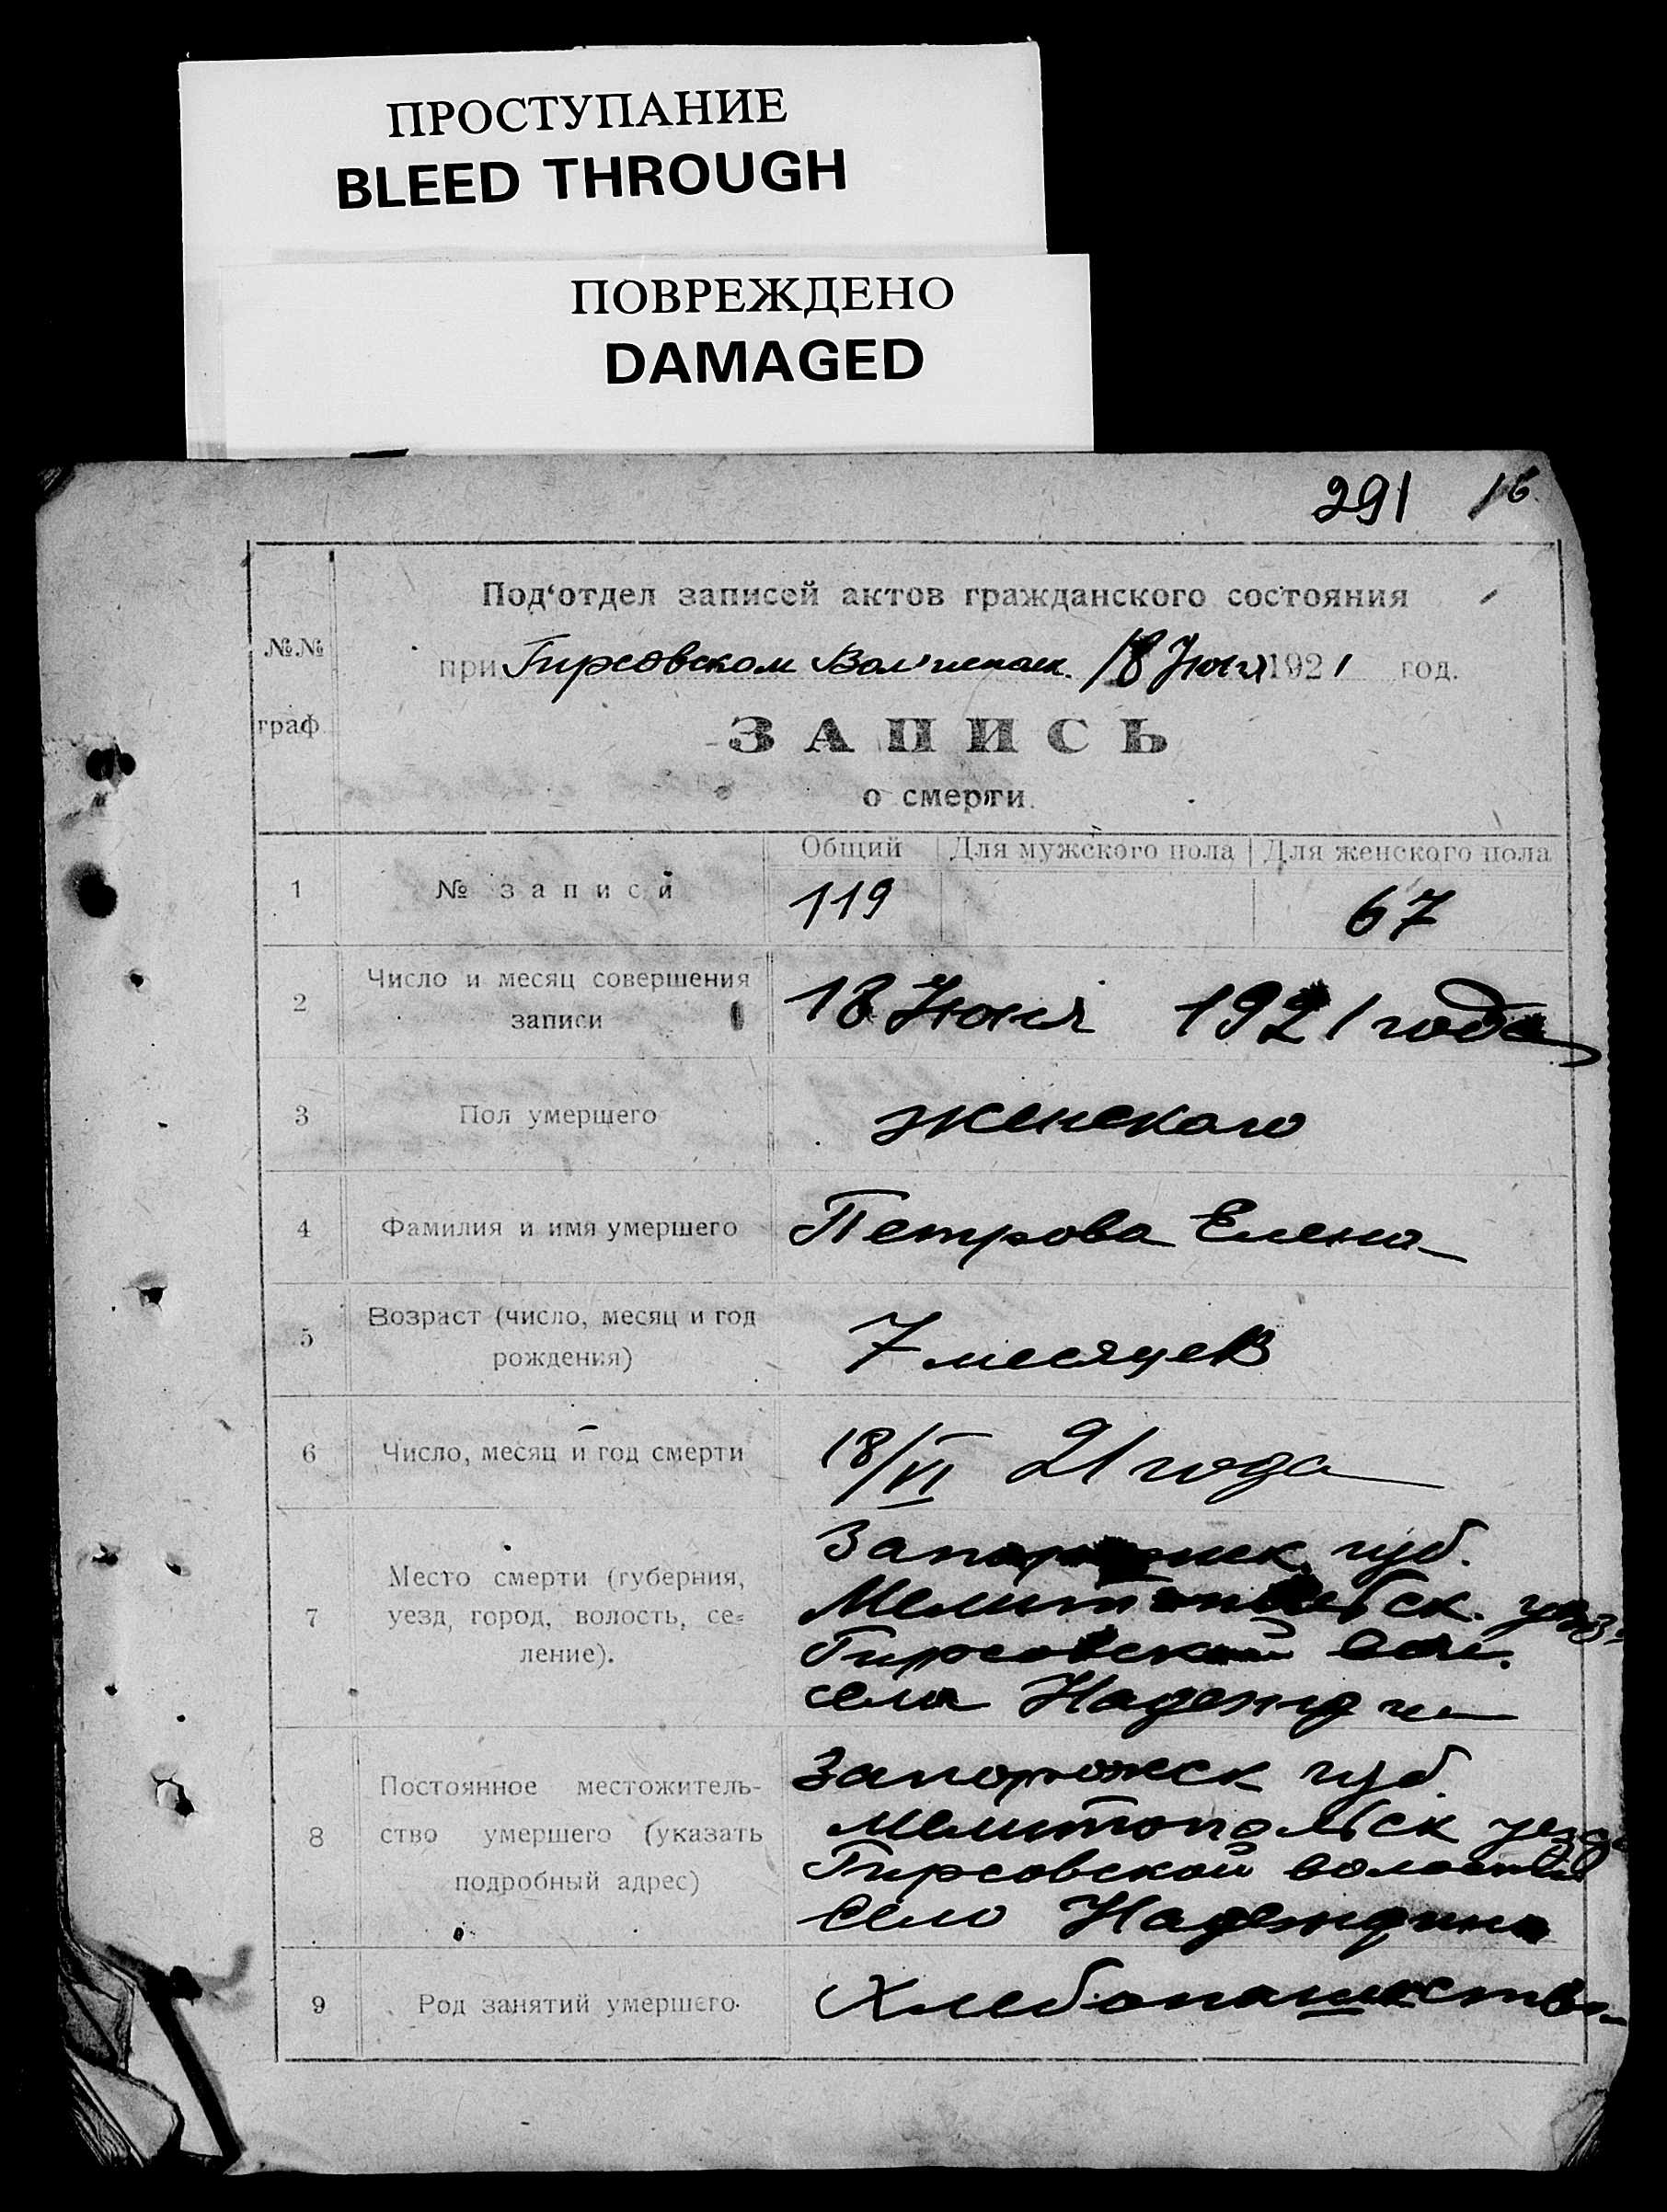 ПРОСТУПАНИЕ
BLEED THROUGH
ПОВРЕЖДЕНО
DAMAGED
291 16
Под‘отдел записей актов гражданского состояния
№№ при Гирсовском Вол'исполк. 18 Июня 1921 год.
граф. ЗАПИСЬ
о смерти.
Общий Для мужского пола Для женского пола
1 № записи 119 67
2 Число и месяц совершения
записи 18 Июня 1921 года
3 Пол умершего женского
4 Фамилия и имя умершего Петрова Елена
5 Возраст (число, месяц и год
рождения) 7 месяцев
6 Число, месяц и год смерти 18/VI 21 года
Запорожск губ.
7 Место смерти (губерния, Мелитопольск. уез.
уезд, город, волость, се= Гирсовской вол.
ление). село Надежди
Запорожск губ.
8 Постоянное местожитель- Мелитопольск уезда
ство умершего (указать Гирсовской волости
подробный адрес) Село Надеждино
9 Род занятий умершего. Хлебопашество